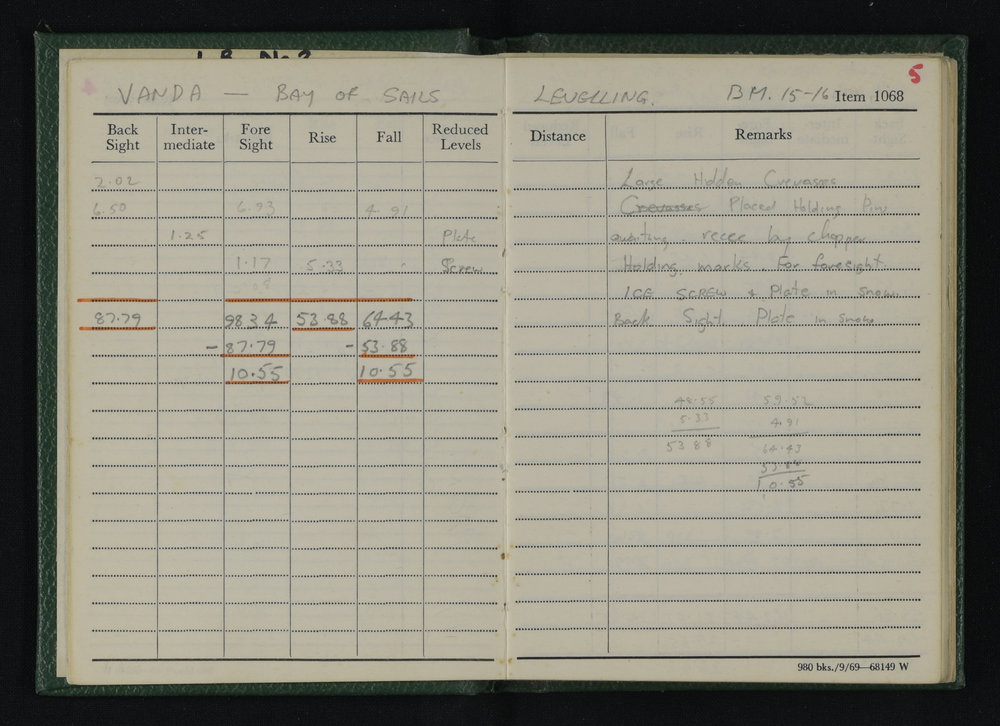 VANDA — BAY OF SAILS
Back Sight Inter-mediate Fore Sight Rise Fall Reduced Levels
2.02
6.50 6.93 4.91
1.25 Plate
1.17 5.33 Screw
87.79 98.34 53.88 64.43
- 87.79 - 53.88
10.55 10.55
5
LEVELLING. BM. 15-16 Item 1068
Distance Remarks
Large Hidden Crevasses
Crevasses Placed Holding Pins
awaiting recce by chopper
Holding marks. For foresight
ICE SCREW & Plate in Snow
Back Sight Plate in Snow
48.55 59.52
5.33 4.91
53 88 64.43
53.88
10.55
980 bks./9/69—68149 W